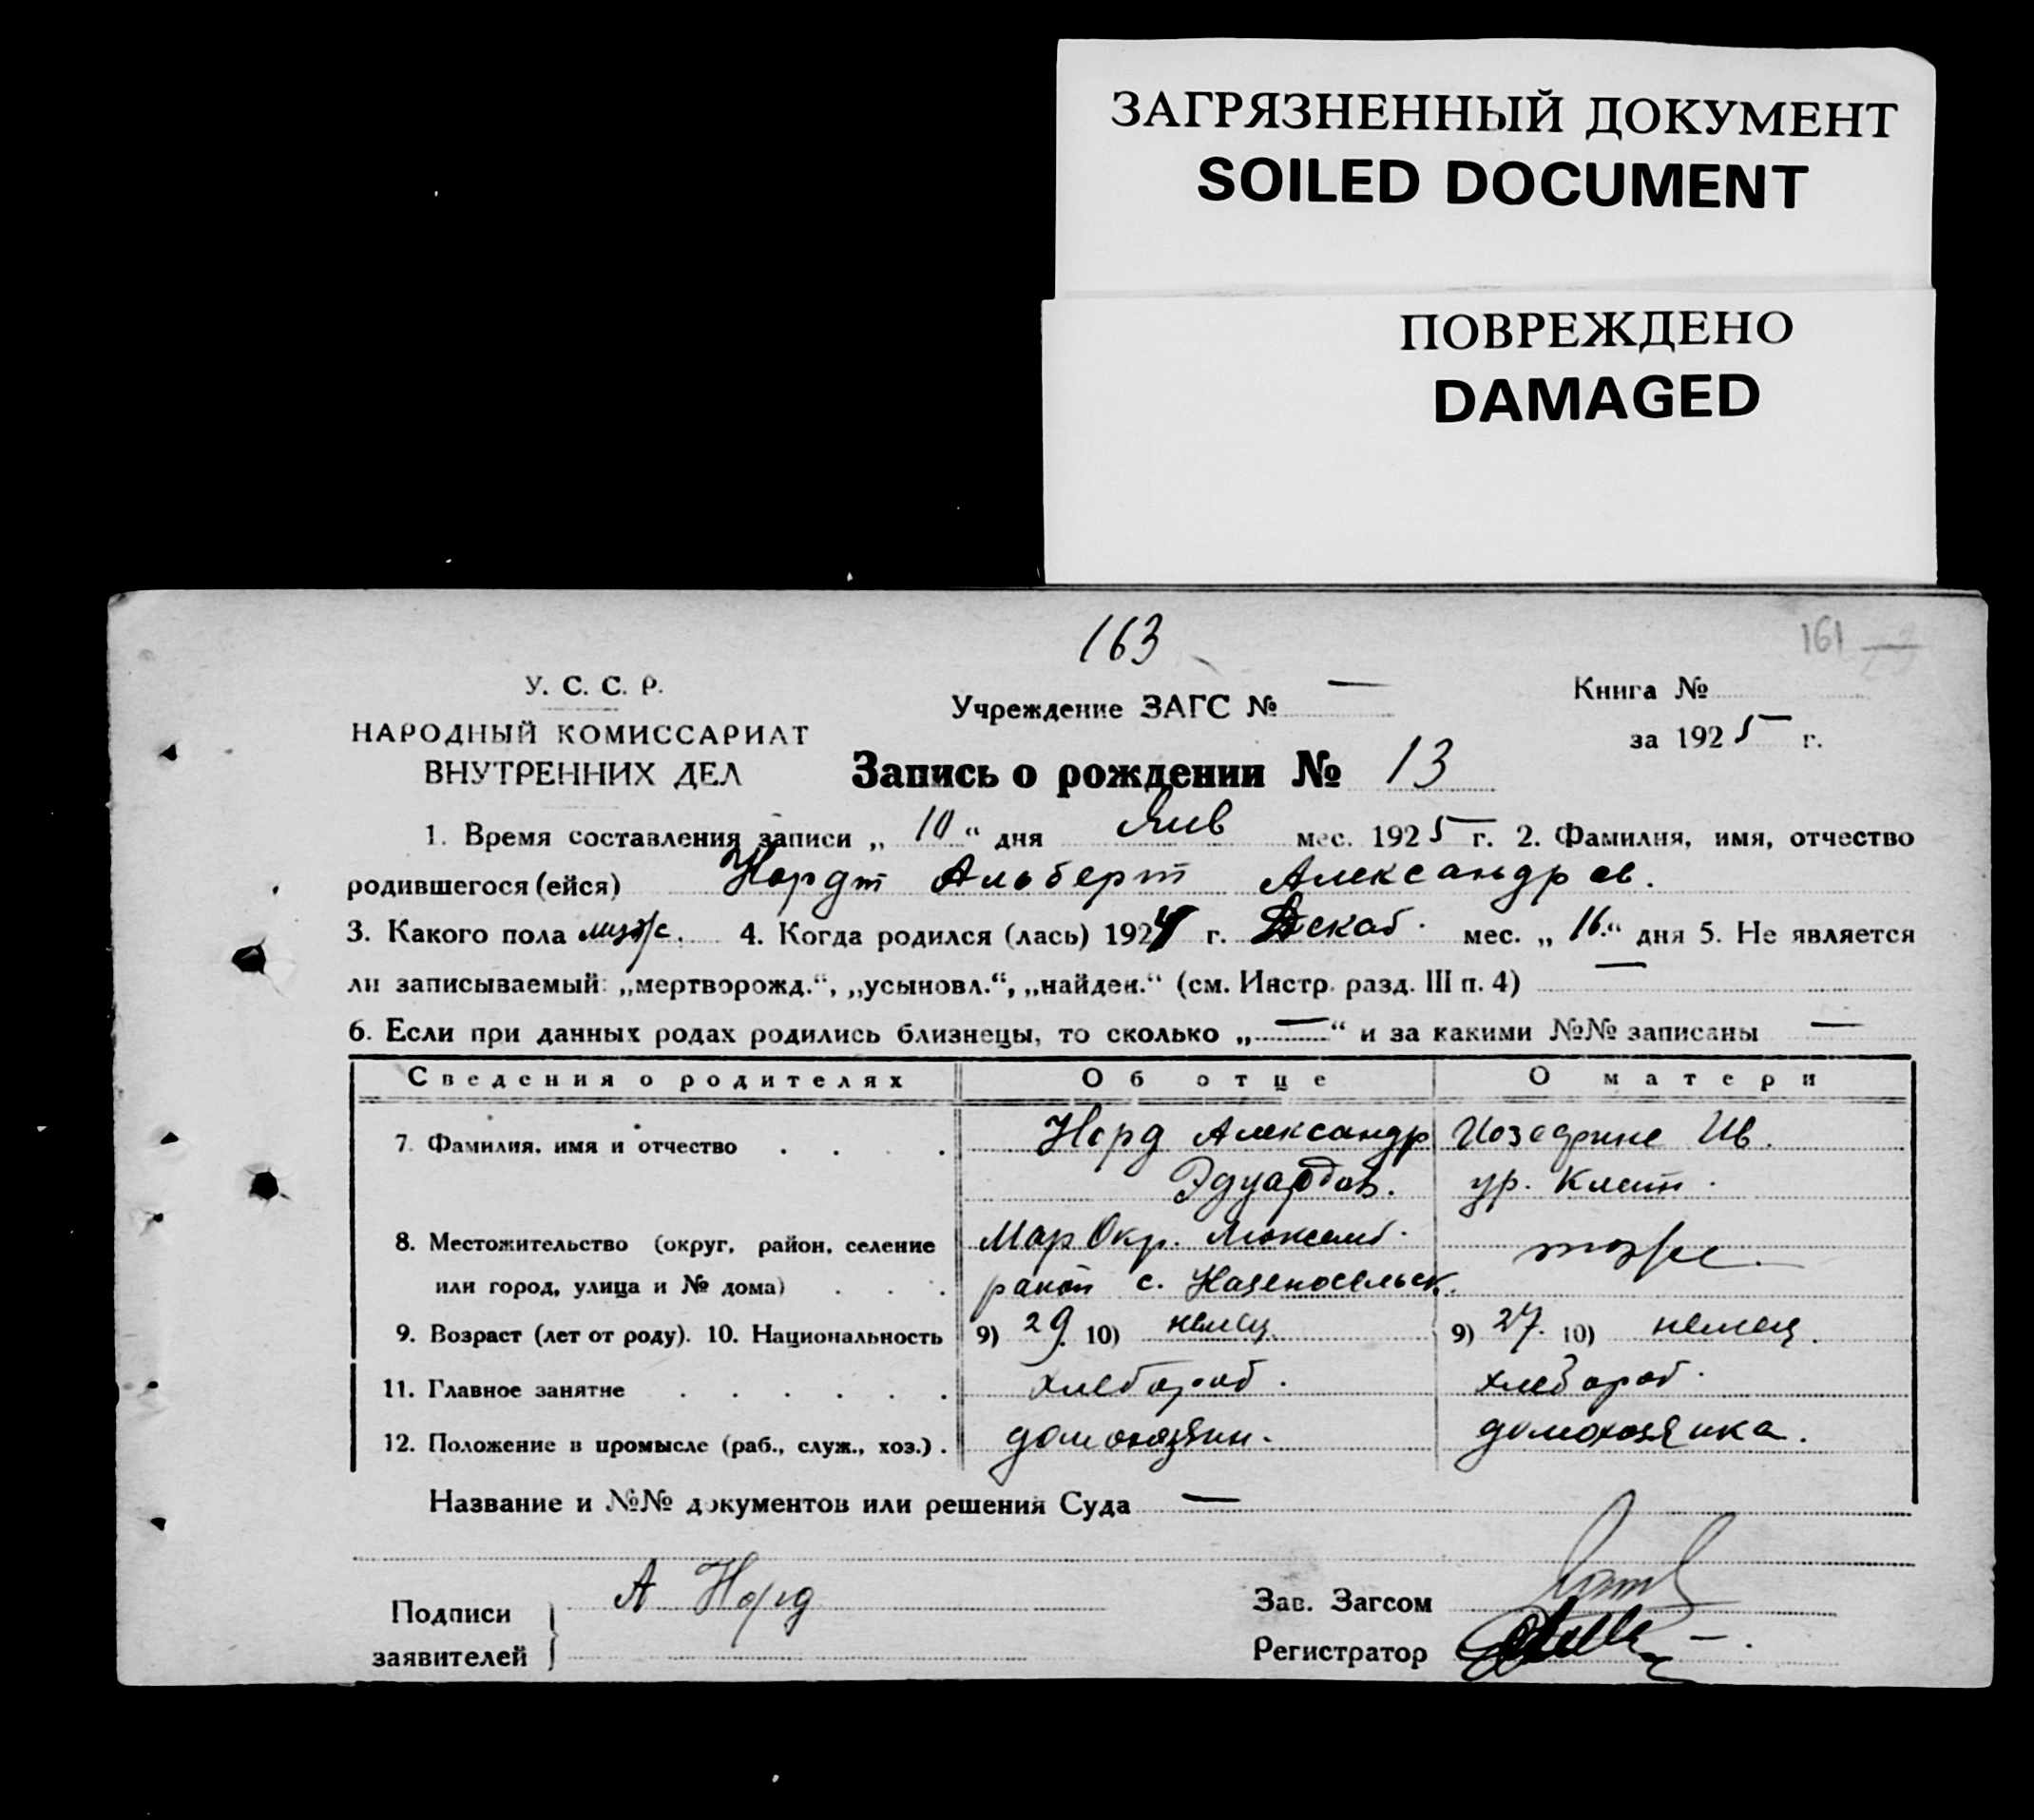 ЗАГРЯЗНЕННЫЙ ДОКУМЕНТ
SOILED DOCUMENT
ПОВРЕЖДЕНО
DAMAGED
163
161
У. С. С. Р.
НАРОДНЫЙ КОМИССАРИАТ
ВНУТРЕННИХ ДЕЛ
Учреждение ЗАГС № —
Книга №
за 1925 г.
Запись о рождении № 13
1. Время составления записи „ 10 “ дня Янв мес. 1925 г. 2. Фамилия, имя, отчество
родившегося (ейся) Нордт Альберт Александров.
3. Какого пола муж. 4. Когда родился (лась) 1924 г. Декаб. мес. „ 16. “ дня 5. Не является
ли записываемый: „мертворожд.“, „усыновл.“, „найден.“ (см. Инстр. разд. III п. 4) —
6. Если при данных родах родились близнецы, то сколько „ — “ и за какими №№ записаны —
Сведения о родителях Об отце О матери
7. Фамилия, имя и отчество . . . . Норд Александр Иозефине Ив.
Эдуардов. ур.
8. Местожительство (округ, район, селение Мар Окр. Люксемб. тоже.
или город, улица и № дома) . . . район с.
9. Возраст (лет от роду). 10. Национальность 9) 29. 10) немец. 9) 27. 10) немец.
11. Главное занятие . . . . . . хлебороб. хлебороб.
12. Положение в промысле (раб., служ., хоз.) . домохозяин. домохозяйка.
Название и №№ документов или решения Суда —
Подписи
заявителей
А Норд
Зав. Загсом
Регистратор